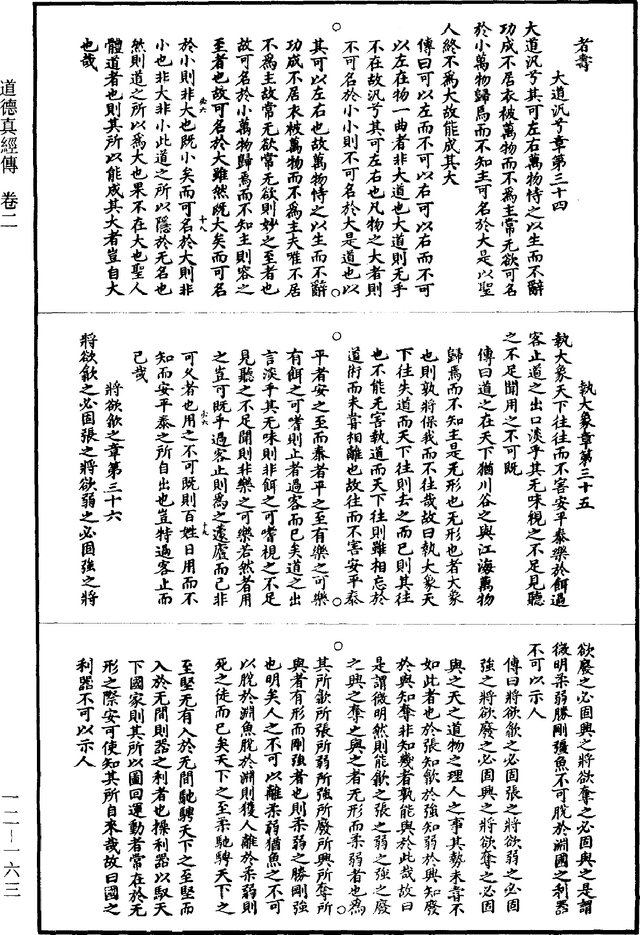 道德真經傳　卷二
者壽
大道汎兮章第三十四
大道汎兮其可左右萬物恃之以生而不辭
功成不居衣被萬物而不為主常无欲可名
於小萬物歸焉而不知主可名於大是以聖
人終不為大故能成其大
傳曰可以左而不可以右可以右而不可
以左在物一曲者非大道也大道則无乎
不在故汎兮其可左右也凡物之大者則
不可名於小小則不可名於大是道也以
其可以左右也故萬物恃之以生而不辭
功成不居衣被萬物而不為主夫唯不居
不為主故常无欲常无欲則妙之至者也
故可名於小萬物歸焉而不知主則容之
至者也故可名於大雖然既大矣而可名
於小則非大也既小矣而可名於大則非
小也非大非小此道之所以隱於无名也
然則道之所以為大也果不在大也聖人
體道者也則其所以能成其大者豈自大
也哉
執大象章第三十五
執大象天下往往而不害安平泰樂於餌過
客止道之出口淡乎其无味視之不足見聽
之不足聞用之不可既
傳曰道之在天下猶川谷之與江海萬物
歸焉而不知主是无形也无形也者大象
也則孰將保我而不往哉故曰執大象天
下往失道而天下往則去之而已則其往
也不能无害執道而天下往則雖相忘於
道術而未嘗相離也故往而不害安平泰
平者安之至而泰者平之至有樂之可樂
有餌之可嗜則止者過客而已矣道之出
言淡乎其无味則非餌之可嗜視之不足
見聽之不足聞則非樂之可樂若然者用
之豈可既乎過客止則為之蘧廬而已非
可久者也用之不可既則百姓日用而不
知而安平泰之所自出也豈特過客止而
已哉
將欲歙之章第三十六
將欲歙之必固張之將欲弱之必固強之將
欲廢之必固興之將欲奪之必固與之是謂
微明柔弱勝剛彊魚不可脫於淵國之利器
不可以示人
傳曰將欲歙之必固張之將欲弱之必固
強之將欲廢之必固興之將欲奪之必固
與之天之道物之理人之事其勢未嘗不
如此者也於張知歙於強知弱於興知廢
於與知奪非知幾者孰能與於此哉故曰
是謂微明然則能歙之張之弱之強之廢
之興之奪之與之者无形而柔弱者也為
其所歙所張所弱所強所廢所興所奪所
與者有形而剛強者也則柔弱之勝剛強
也明矣人之不可以離柔弱猶魚之不可
以脫於淵魚脫於淵則獲人離於柔弱則
死之徒而已矣天下之至柔馳騁天下之
至堅无有入於无間馳騁天下之至堅而
入於无間則器之利者也操利器以馭天
下國家則其所以圖回運動者常在於无
形之際安可使知其所自来哉故曰國之
利器不可以示人
一二－一六三